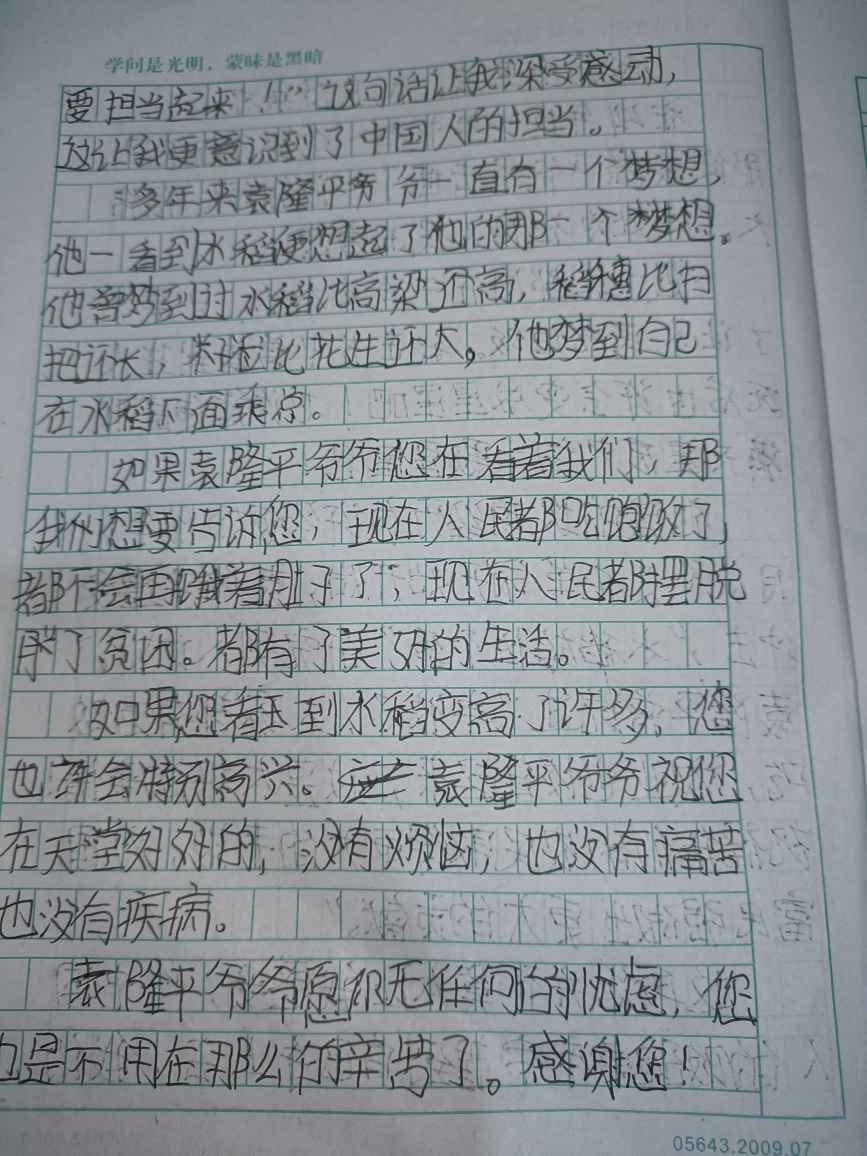 学问是光明，蒙昧是黑暗
要担当起来！”这句话让我深受感动，
这让我更意识到了中国人的担当。
多年来袁隆平爷爷一直有一个梦想，
他一看到水稻便想起了他的那一个梦想。
他曾梦到过水稻比高梁还高，稻穗比扫
把还长，籽粒比花生还大。他梦到自己
在水稻下面乘凉。
如果袁隆平爷爷您在看着我们，那
我们想要告诉您，现在人民都吃饱饭了，
都不会再饿着肚子了，现在人民都摆脱
了贫困。都有了美好的生活。
如果您看到水稻变高了许多，您
也许会特别高兴。袁隆平爷爷祝您
在天堂好好的，没有烦恼，也没有痛苦
也没有疾病。
袁隆平爷爷愿你无任何的忧虑，您
也是不用在那么的辛苦了。感谢您！
05643.2009.07